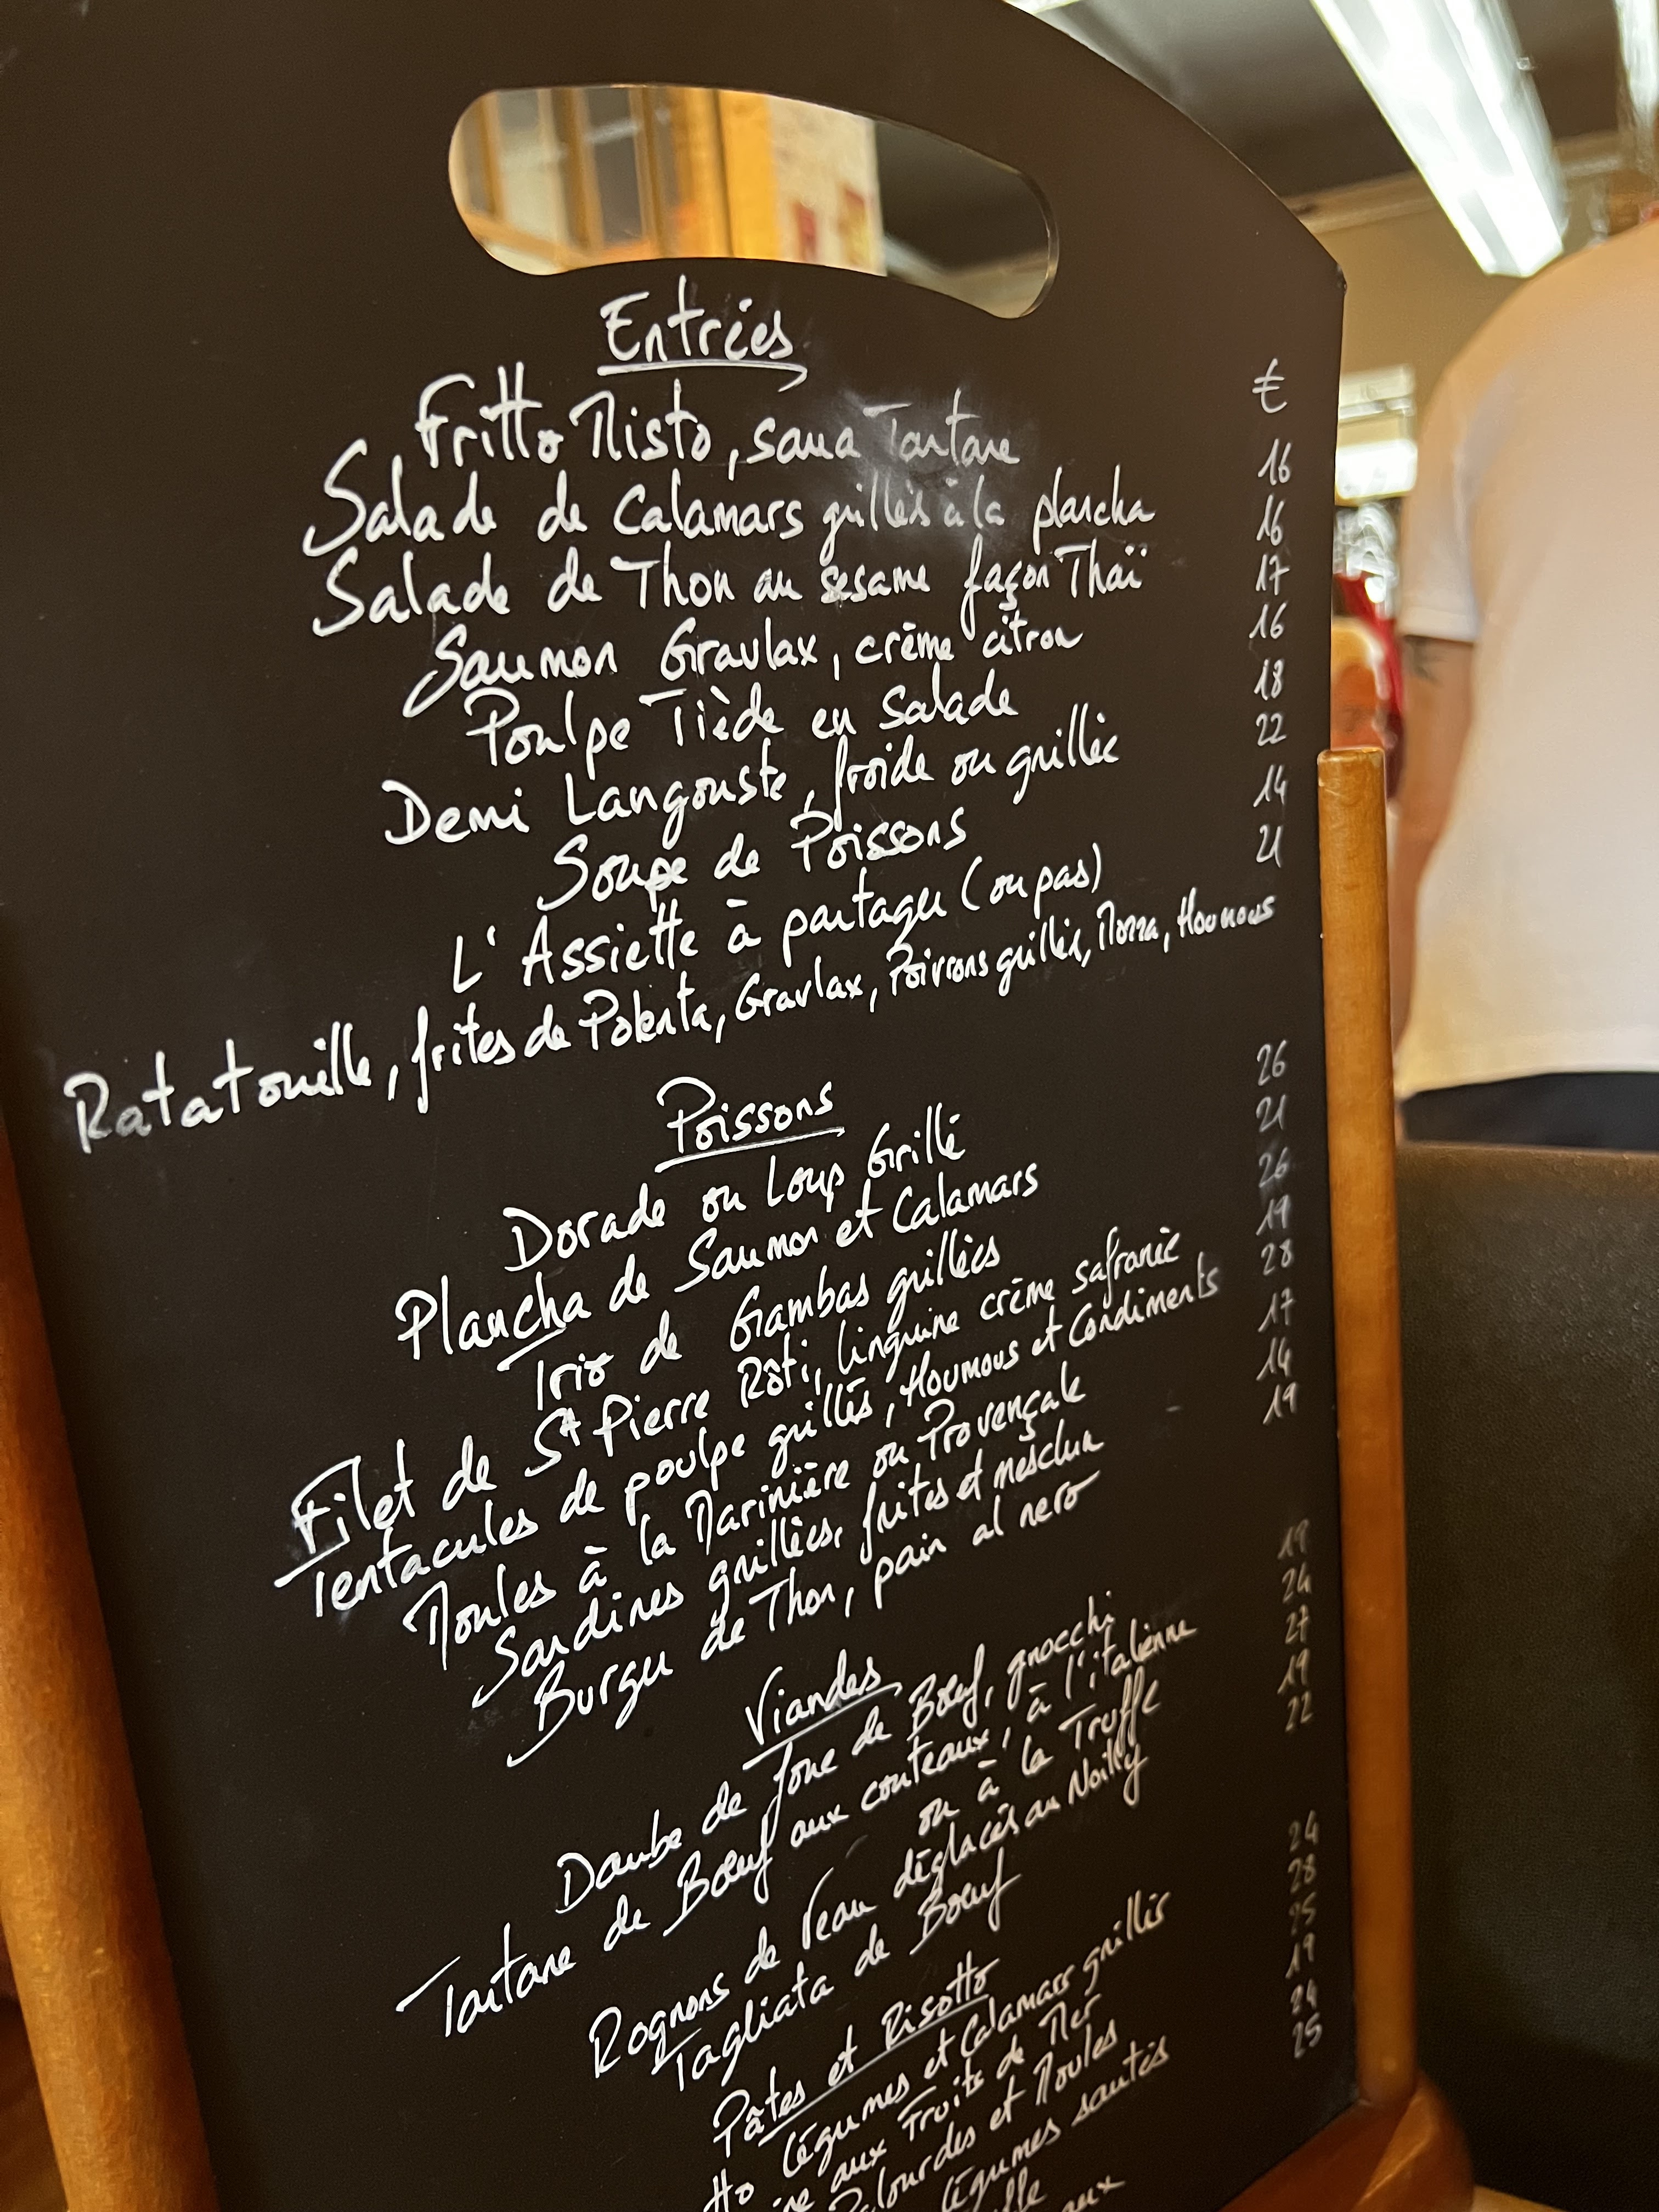 Entrées
€
Fritto Misto, sauce Tartare 16
Salade de Calamars grillés à la plancha 16
Salade de Thon au sesame façon Thaï 17
Saumon Gravlax, crème citron 16
Poulpe Tiède en Salade 18
Demi Langouste, froide ou grillée 22
Soupe de Poissons 14
L'Assiette à partager (ou pas) 21
Ratatouille, frites de Polenta, Gravlax, Poivrons grillés, Mozza, Houmous
Poissons
Dorade ou Loup Grillé 26
Plancha de Saumon et Calamars 21
Trio de Gambas grillées 26
Filet de St Pierre Rôti, linguine crème safranée 19
Tentacules de poulpe grillés, Houmous et Condiments 28
Moules à la Marinière ou Provençale 17
Sardines grillées, frites et mesclun 14
Burger de Thon, pain al nero 19
Viandes
Daube de Joue de Bœuf, gnocchi 19
Tartare de Bœuf aux couteaux, à l'italienne 24
ou à la Truffe 27
Rognons de Veau déglacés au Noilly 19
Tagliata de Bœuf 22
Pâtes et Risotto
Légumes et Calamars grillés 24
aux Fruits de Mer 28
Palourdes et Moules 25
Légumes sautés 19
24
aux 25